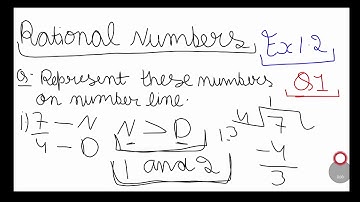 Rational Numbers Ex 1.2
Q. Represent these numbers Q1
on number line.
1) 7 — N
4 — D
N > D
1 and 2
1
4 7
1.3
-4
3